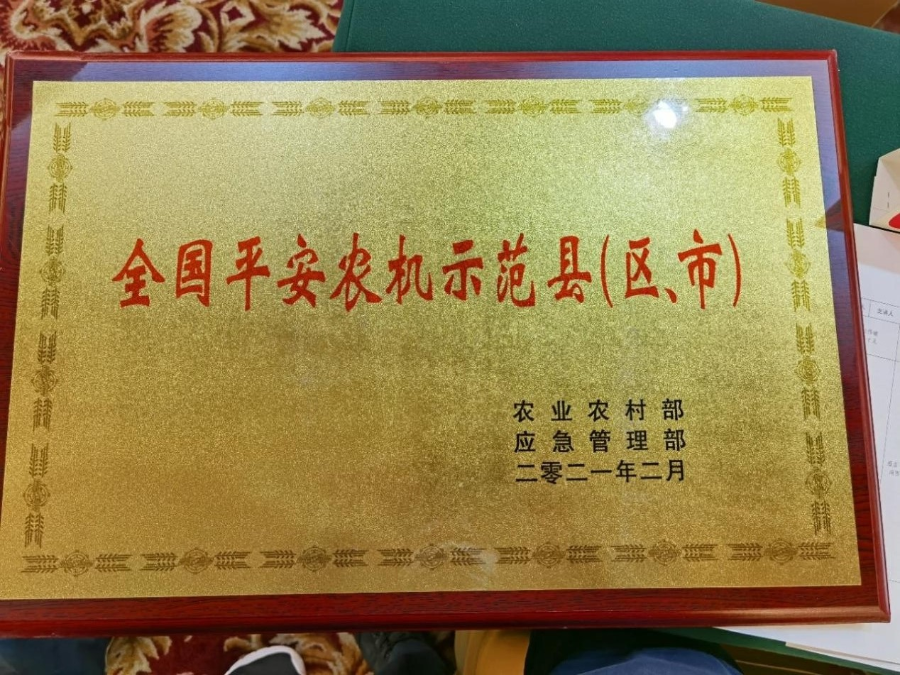 全国平安农机示范县(区、市)
农业农村部
应急管理部
二零二一年二月